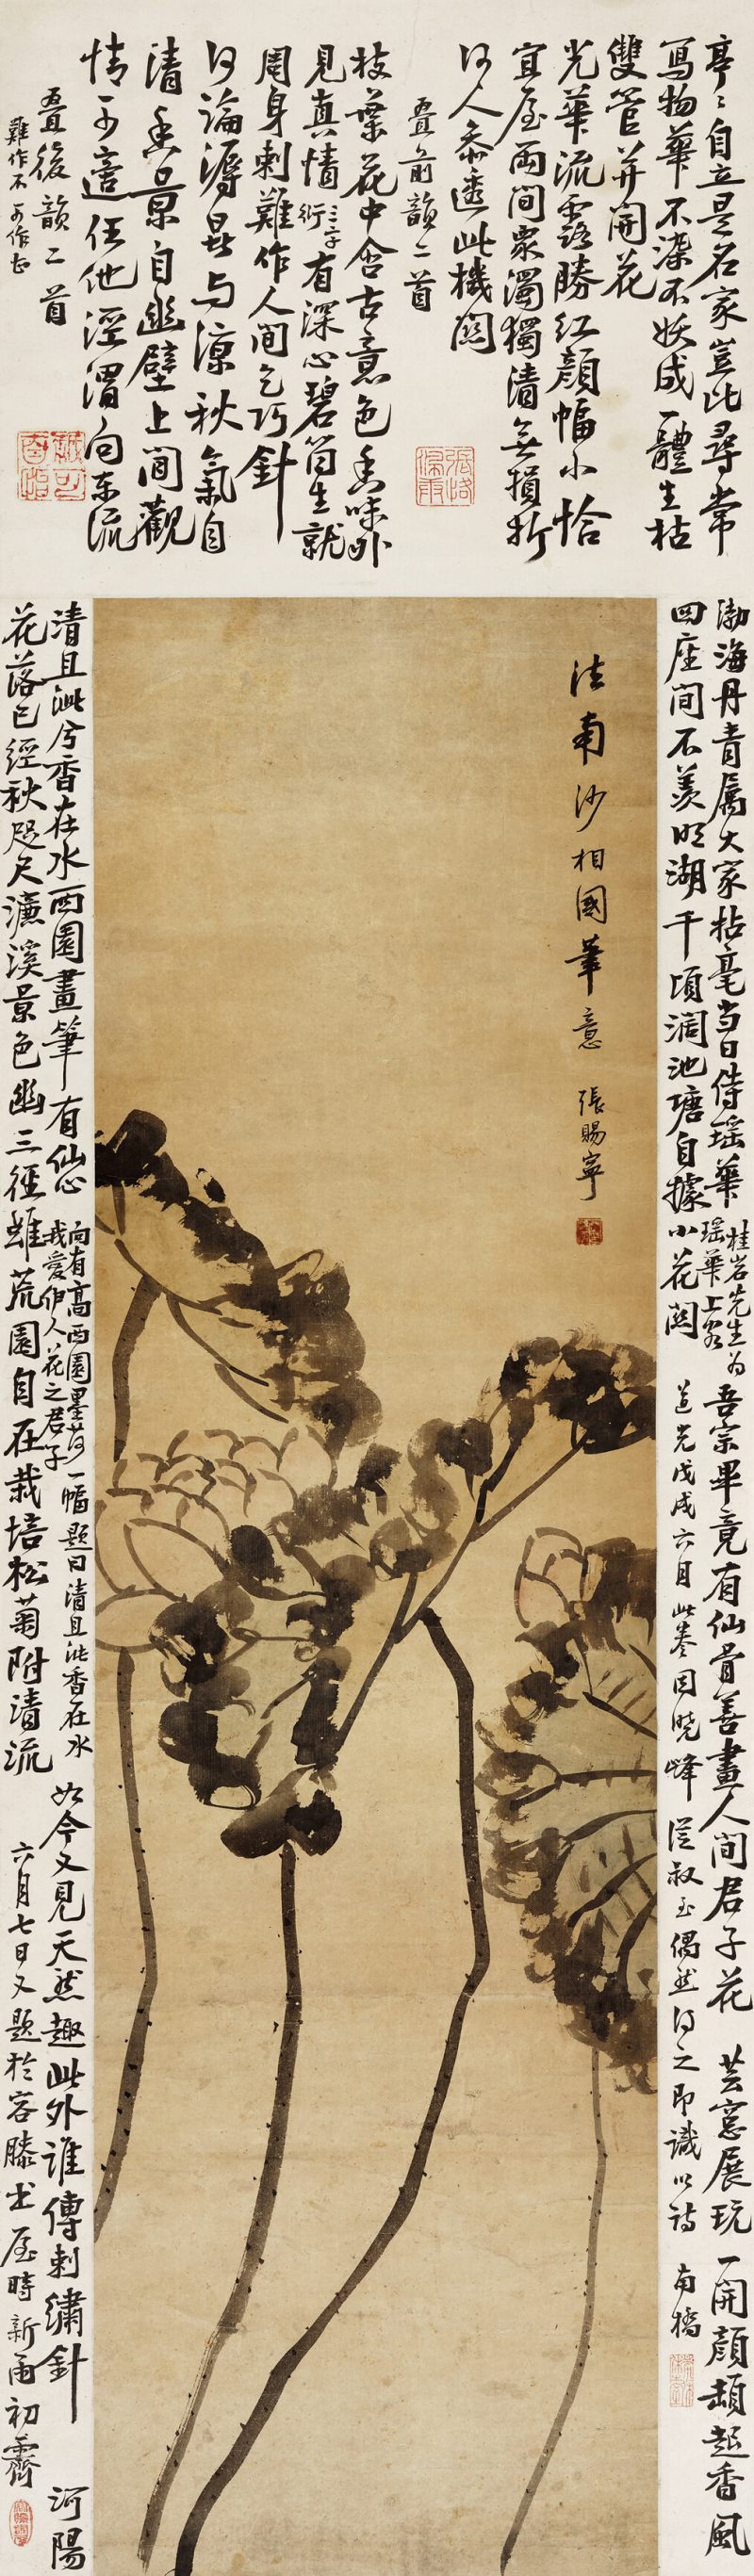 亭亭自立是名家豈比尋常
寫物華不染不妖成一體生枯
雙管并開花
光華流露勝紅顏幅小恰
宜屋兩間眾濁獨清無損折
何人參透此機關
疊前韻二首
枝葉花中含古意色香味外
見真情衍三字有深心碧筒生就
周身刺難作人間乞巧針
何論溽暑与涼秋氣自
清香景自幽壁上閒觀
情可適任他涇渭向東流
疊後韻二首
難作不可作也
法南沙相國筆意 張賜寧
渤海丹青属大家拈毫当日侍瑶華
桂岩先生为
瑶華上客
吾宗畢竟有仙骨善畫人間君子花
芸窓展玩一開顏頓起香風
四座間不羨明湖千頃濶池塘自據小花關
道光戊戌六月此卷因曉峰從叔玉偶然得之即識以詩
南橋
清且泚兮香在水西園畫筆有仙心
向有高西園墨荷一幅題曰清且泚香在水
我愛伊人花之君子
如今又見天然趣此外誰傳刺繡針
河陽
花落已經秋咫尺濂溪景色幽三徑雖荒園自在栽培松菊附清流
六月七日又題於容膝書屋時新雨初霽